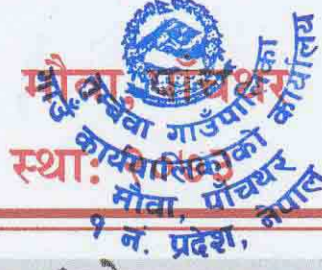 मौवा, पाँचथर
स्था: २०७३
तुम्बेवा गाउँपालिका
गाउँ कार्यपालिकाको कार्यालय
मौवा, पाँचथर
१ नं. प्रदेश, नेपाल